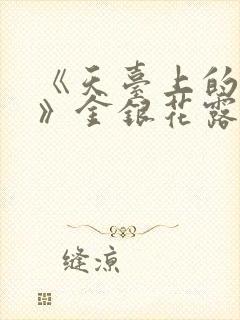 《天臺上的
》金銀花露
缝凉